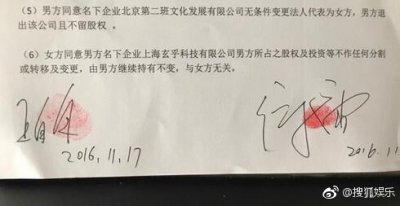 （5）男方同意名下企业北京第二班文化发展有限公司无条件变更法人代表为女方，男方退
出该公司且不留股权 。
（6）女方同意男方名下企业上海玄乎科技有限公司男方所占之股权及投资等不作任何分割
或转移及变更，由男方继续持有不变，与女方无关。
2016.11.17
2016.11
@搜狐娱乐